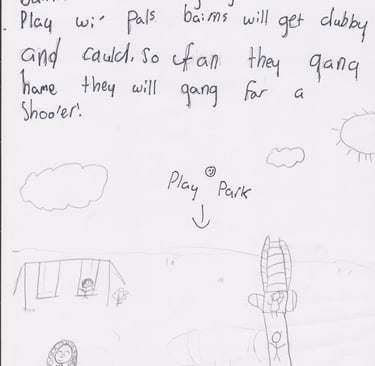 Play wi' pals bairns will get dubby
and cauld, so fan they gang
hame they will gang for a
Shoo'er!
Play Park